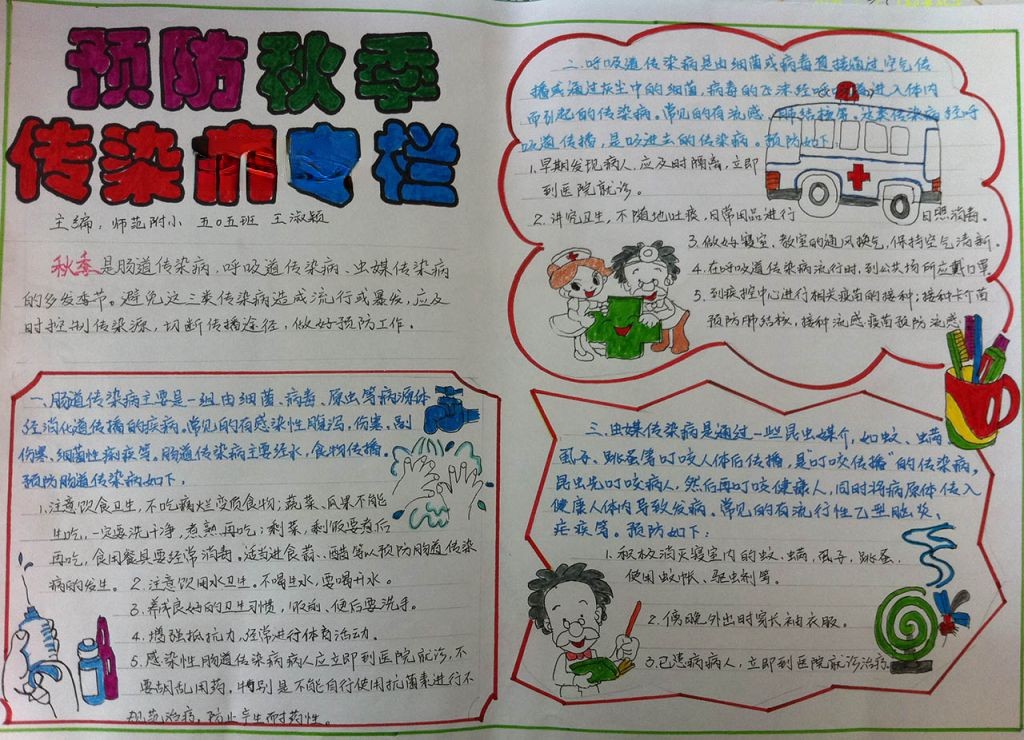 预防秋季
传染病专栏
主编：师范附小 五〇五班 王淑颖
秋季是肠道传染病、呼吸道传染病、虫媒传染病
的多发季节。避免这三类传染病造成流行或暴发，应及
时控制传染源，切断传播途径，做好预防工作。
一、肠道传染病主要是一组由细菌、病毒、原虫等病源体
经消化道传播的疾病。常见的有感染性腹泻，伤寒、副
伤寒、细菌性痢疾等。肠道传染病主要经水，食物传播。
预防肠道传染病如下：
1.注意饮食卫生，不吃腐烂变质食物；蔬菜、瓜果不能
生吃，一定要洗干净，煮熟再吃；剩菜、剩饭要煮后
再吃，食用餐具要经常消毒。适当进食蒜、醋等以预防肠道传染
病的发生。2.注意饮用水卫生。不喝生水，要喝开水。
3.养成良好的卫生习惯，饭前、便后要洗手。
4.增强抵抗力，经常进行体育活动。
5.感染性肠道传染病病人应立即到医院就诊，不
要胡乱用药。特别是不能自行使用抗菌素进行不
规范治疗，防止产生耐药性。
二、呼吸道传染病是由细菌或病毒直接通过空气传
播或通过灰尘中的细菌、病毒的飞沫经呼吸道进入体内
而引起的传染病。常见的有流感、肺结核等。这类传染病经呼
吸道传播，是吸进去的传染病。预防如下：
1.早期发现病人，应及时隔离，立即
到医院就诊。
2.讲究卫生，不随地吐痰，日常用品进行 日照消毒。
3.做好寝室、教室的通风换气，保持空气清新。
4.在呼吸道传染病流行时，到公共场所应戴口罩
5.到疾控中心进行相关疫苗的接种；接种卡介苗
预防肺结核，接种流感疫苗预防流感
三、虫媒传染病是通过一些昆虫媒介，如蚊、虫螨
虱子、跳蚤等叮咬人体后传播，是“叮咬传播”的传染病，
昆虫先叮咬病人，然后再叮咬健康人，同时将病原体传入
健康人体内导致发病。常见的有流行性乙型脑炎、
疟疾等。预防如下：
1.积极消灭寝室内的蚊、螨、虱子、跳蚤，
使用蚊帐、驱虫剂等。
2.傍晚外出时穿长袖衣服。
3.已患病病人，立即到医院就诊治疗。